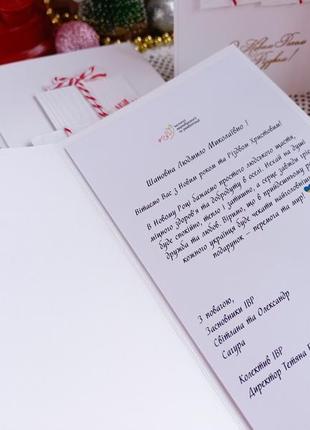 З Новим Роком
Різдвом!
Шановна Людмило Миколаївно !
Вітаємо Вас з Новим роком та Різдвом Христовим!
В Новому Році бажаємо простого людського щастя,
міцного здоров'я та добробуту в оселі. Нехай на душі
буде спокійно, тепло і затишно, а серце завжди гріє
дружба та любов. Віримо, що в прийдешньому році
кожного українця буде чекати найголовніший
подарунок - перемога та мир!
З повагою,
Засновники ІВР
Світлана та Олександр
Сагура
Колектив ІВР
Директор Тетяна